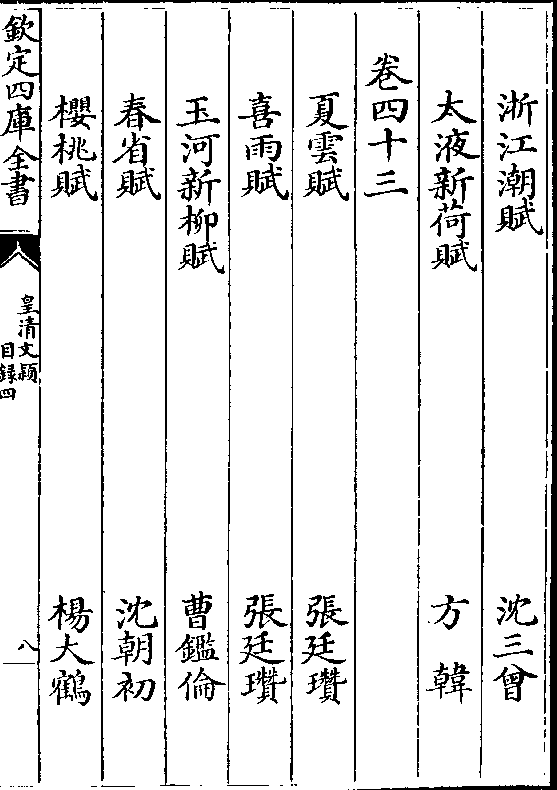 浙江潮賦 沈三曾
太液新荷賦 方韓
卷四十三
夏雲賦 張廷瓚
喜雨賦 張廷瓚
玉河新柳賦 曹鑑倫
春省賦 沈朝初
櫻桃賦 楊大鶴
欽定四庫全書
皇清文穎
目録四
八